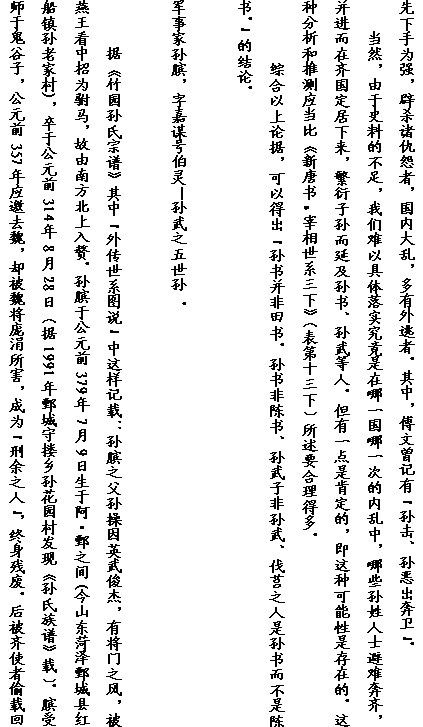 先下手为强，辟杀诸仇怨者，国内大乱，多有外逃者。其中，傅文曾记有『孙击、孙恶出奔卫』。
当然，由于史料的不足，我们难以具体落实究竟是在哪一国哪一次的内乱中，哪些孙姓人士避难奔齐，
并进而在齐国定居下来，繁衍子孙而延及孙书、孙武等人。但有一点是肯定的，即这种可能性是存在的。这
种分析和推测应当比《新唐书·宰相世系三下》（表第十三下）所述要合理得多。
综合以上论据，可以得出『孙书并非田书。孙书非陈书、孙武子非孙武、伐莒之人是孙书而不是陈
书。』的结论。
军事家孙膑，字嘉谋号伯灵—孙武之五世孙 。
据《竹园孙氏宗谱》其中『外传世系图说』中这样记载：孙膑之父孙操因英武俊杰，有将门之风，被
燕王看中招为驸马，故由南方北上入赘。孙膑于公元前379年7月9日生于阿·鄄之间(今山东菏泽鄄城县红
船镇孙老家村)，卒于公元前314年8月28日（据1991年鄄城守搂乡孙花园村发现《孙氏族谱》载）。膑受
师于鬼谷子，公元前357年应邀去魏，却被魏将庞涓所害，成为『刑余之人』，终身残废。后被齐使者偷载回